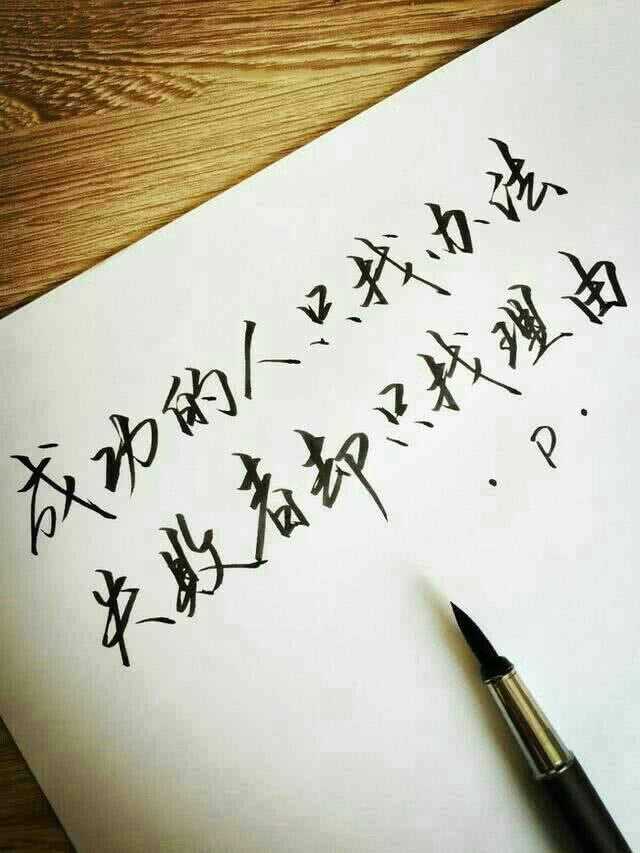 成功的人只找办法
失败者却只找理由
.P.